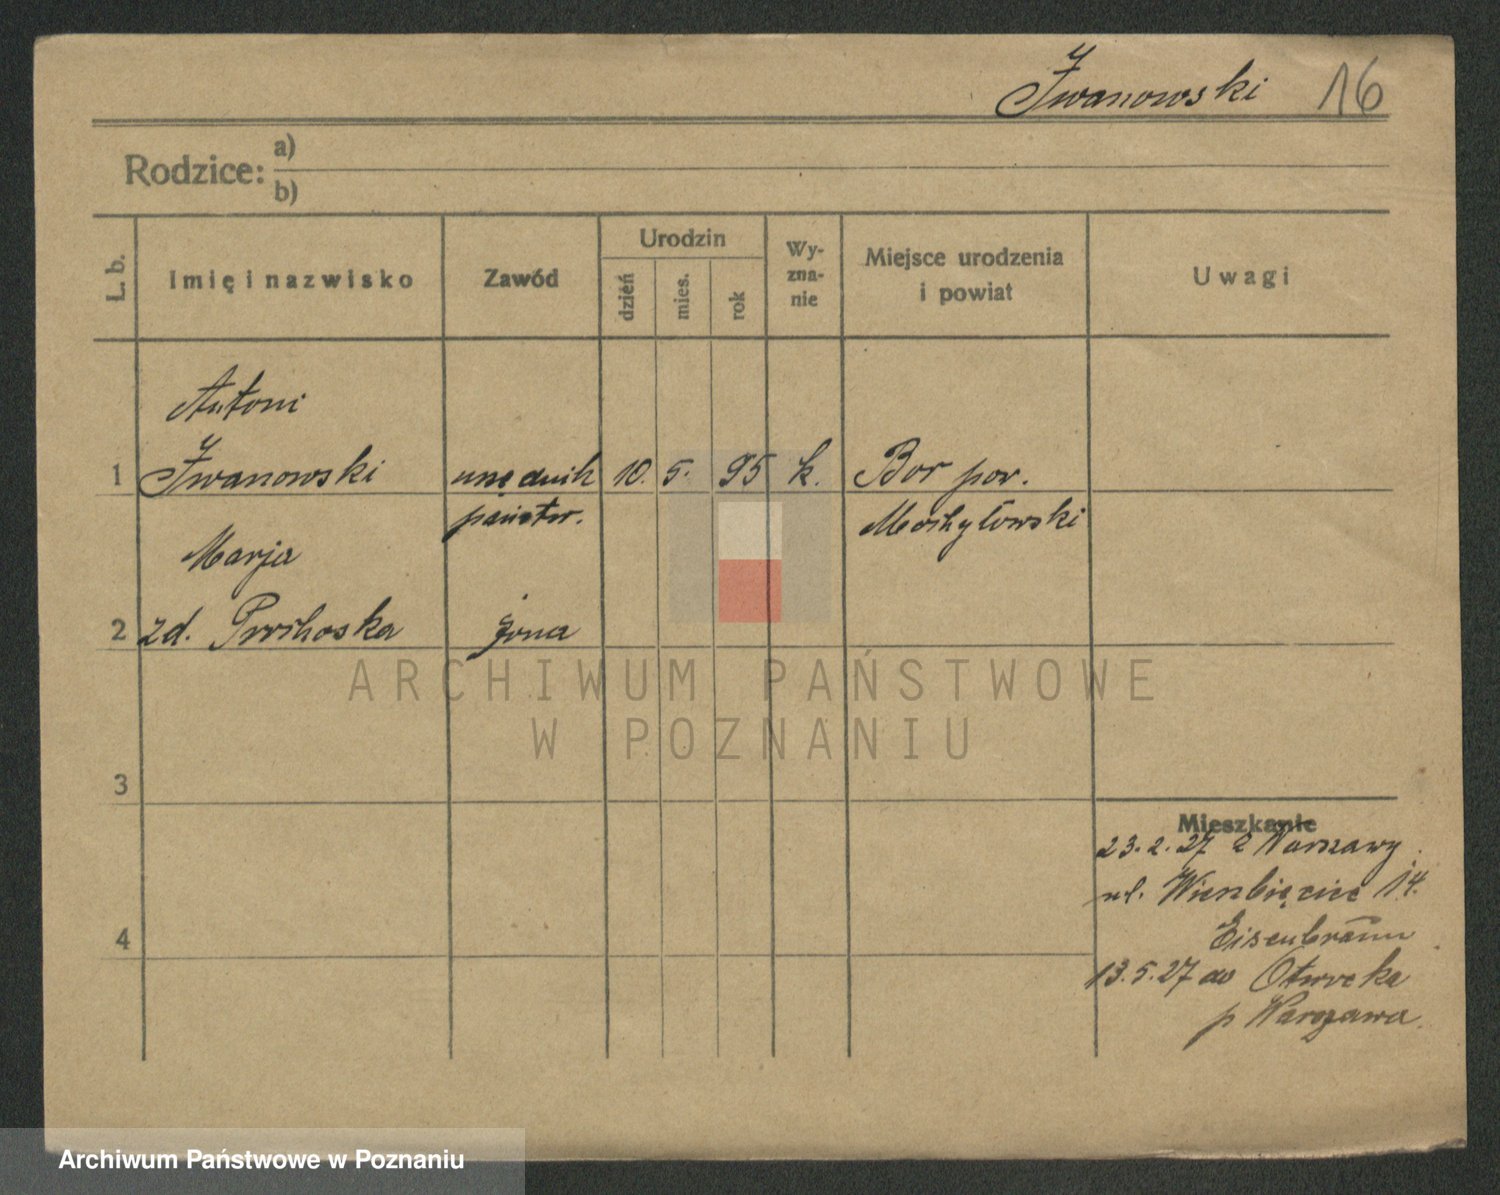 Iwanowski 16
Rodzice: a)
b)
L. b.
Imię i nazwisko
Zawód
Urodzin
dzień
mies.
rok
Wy-
zna-
nie
Miejsce urodzenia
i powiat
Uwagi
Antoni
1 Iwanowski urzędnik 10. 5. 95 k. Bor pow.
państw. Mohylowski
Marja
2 zd. żona
3
4
Mieszkanie
23.2.27 z Warszawy
ul. Wierzbięcice 14.
Eisenbraun
13.5.27 do Otwocka
p Warszawa
ARCHIWUM PAŃSTWOWE
W POZNANIU
Archiwum Państwowe w Poznaniu